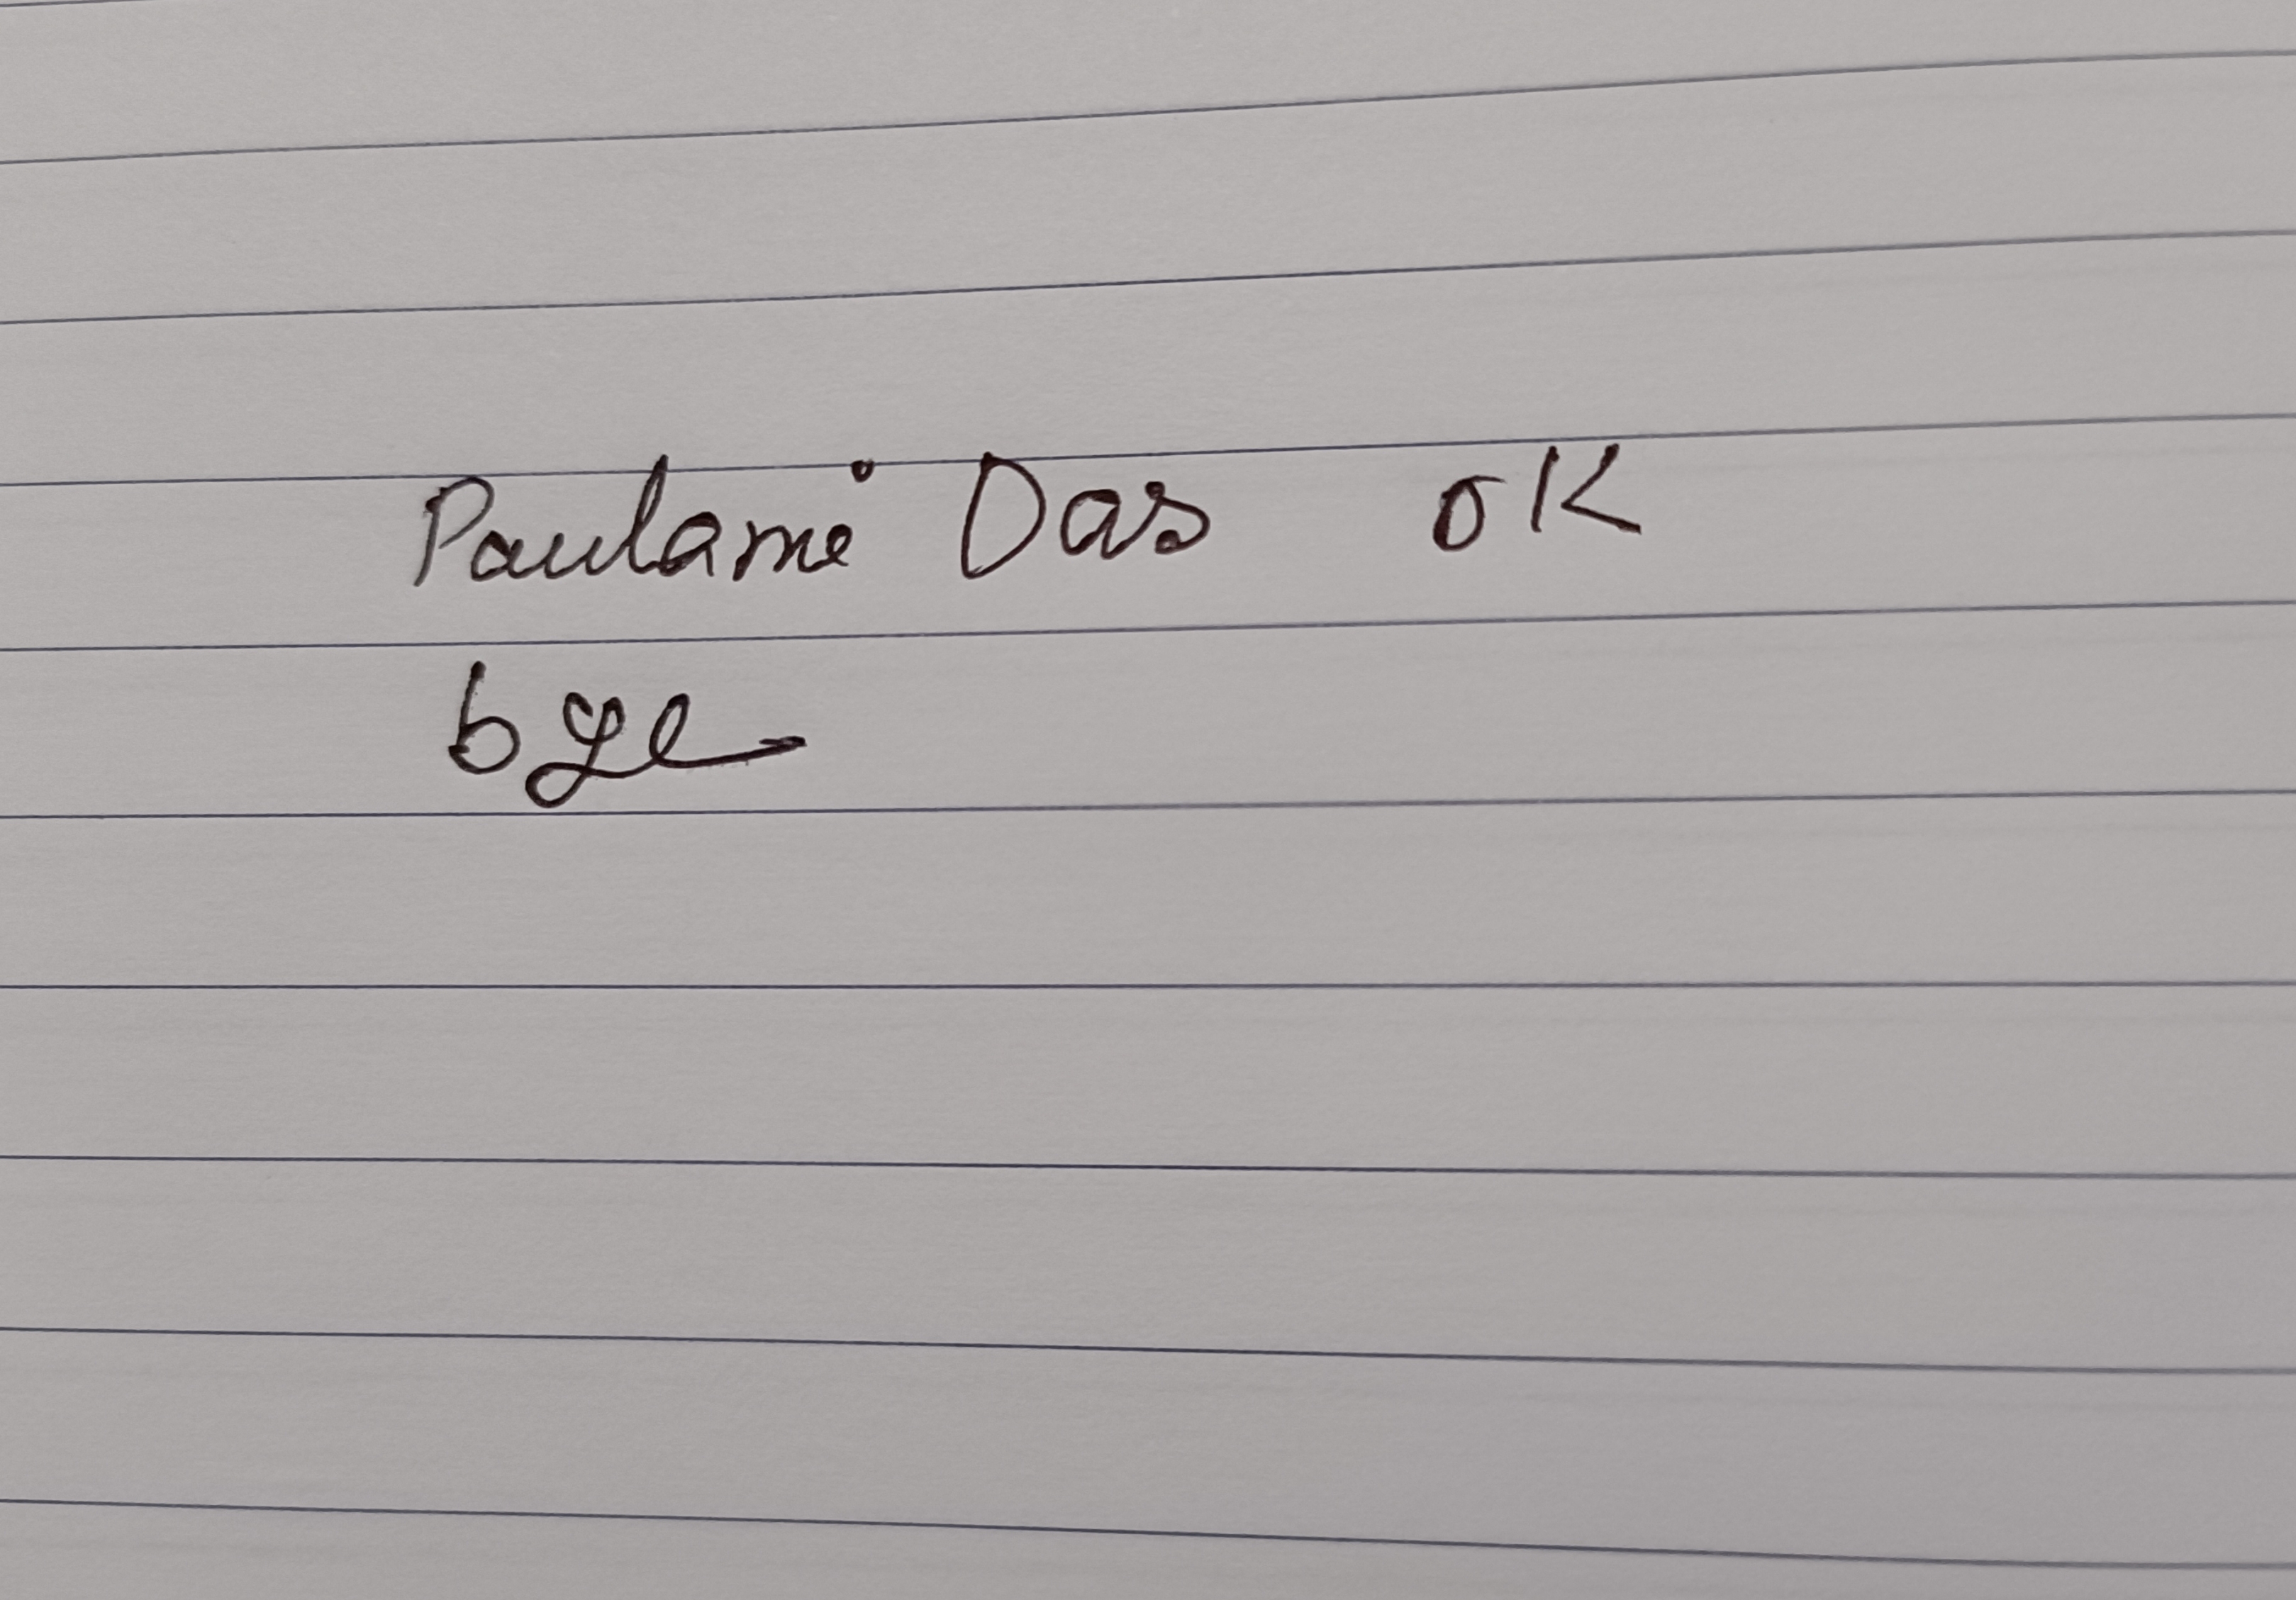 Paulami Das OK
bye